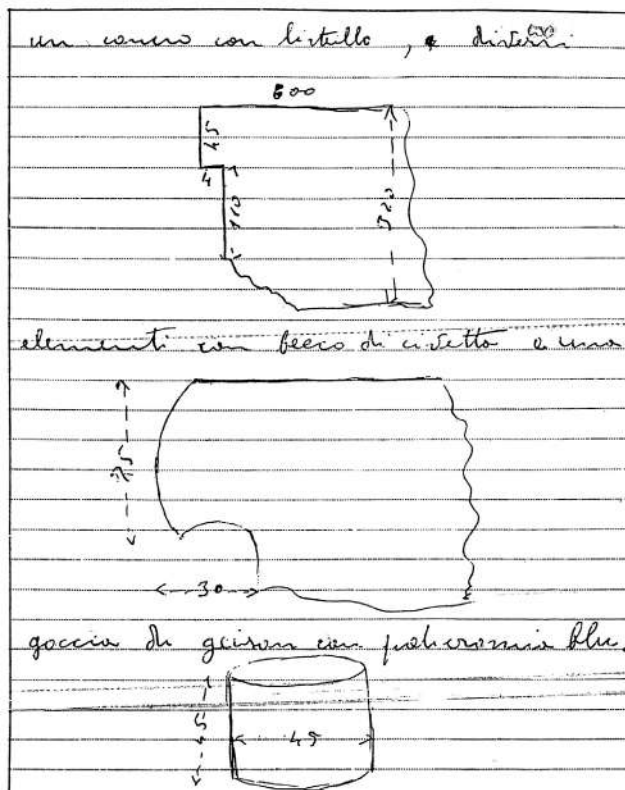 un concio con listello, e diversi
600
45
4
110
320
elementi con becco di civetta e una
75
30
goccia di geison con policromia blu.
45
45